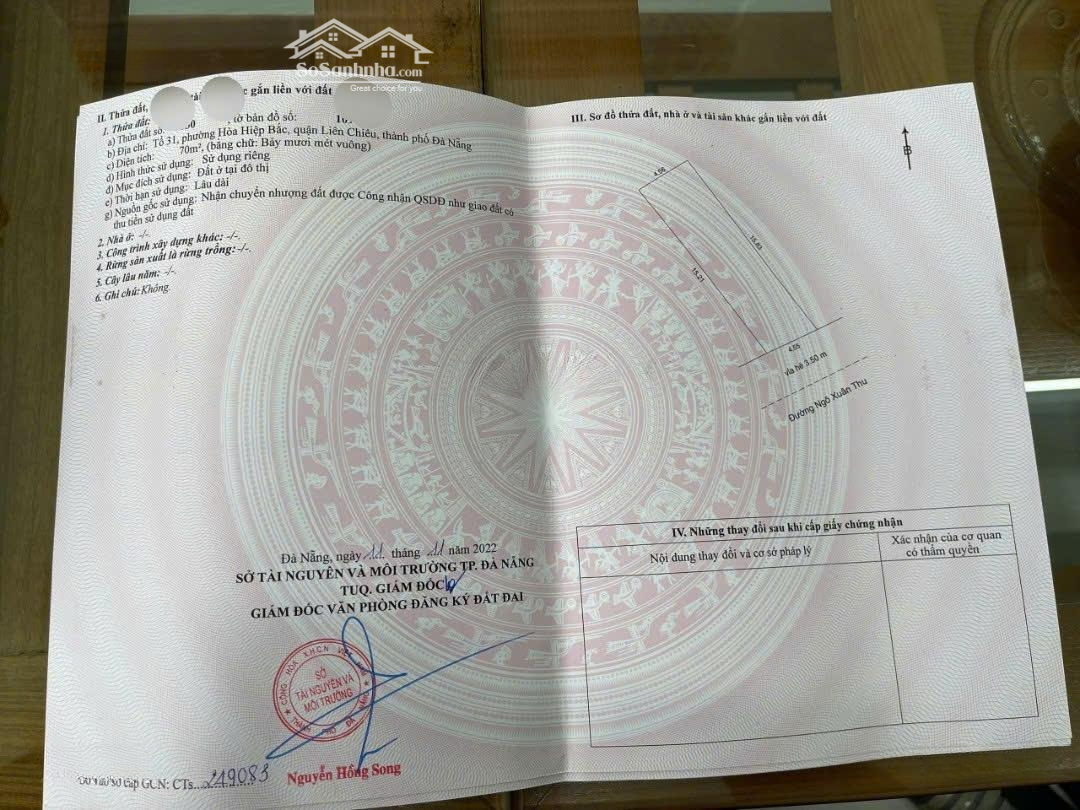 SoSanhnha.com
Great choice for you
II. Thửa đất, gắn liền với đất
1. Thửa đất:
a) Thửa đất số: tờ bản đồ số:
b) Địa chỉ: Tổ 31, phường Hòa Hiệp Bắc, quận Liên Chiểu, thành phố Đà Nẵng
c) Diện tích: 70m², (bằng chữ: Bảy mươi mét vuông)
d) Hình thức sử dụng: Sử dụng riêng
đ) Mục đích sử dụng: Đất ở tại đô thị
e) Thời hạn sử dụng: Lâu dài
g) Nguồn gốc sử dụng: Nhận chuyển nhượng đất được Công nhận QSDĐ như giao đất có
thu tiền sử dụng đất
2. Nhà ở: -/-
3. Công trình xây dựng khác: -/-.
4. Rừng sản xuất là rừng trồng: -/-.
5. Cây lâu năm: -/-.
6. Ghi chú: Không.
Đà Nẵng, ngày 11 tháng 11 năm 2022
SỞ TÀI NGUYÊN VÀ MÔI TRƯỜNG TP. ĐÀ NẴNG
TUQ. GIÁM ĐỐC
GIÁM ĐỐC VĂN PHÒNG ĐĂNG KÝ ĐẤT ĐAI
CỘNG HÒA X.H.C.N VIỆT NAM
SỞ
TÀI NGUYÊN VÀ
MÔI TRƯỜNG
THÀNH PHỐ ĐÀ NẴNG
Nguyễn Hồng Song
số cấp GCN: CTs...219083
III. Sơ đồ thửa đất, nhà ở và tài sản khác gắn liền với đất
B
4.66
15.83
15.21
4.55
vỉa hè 3.50 m
Đường Ngô Xuân Thu
IV. Những thay đổi sau khi cấp giấy chứng nhận
Nội dung thay đổi và cơ sở pháp lý
Xác nhận của cơ quan
có thẩm quyền